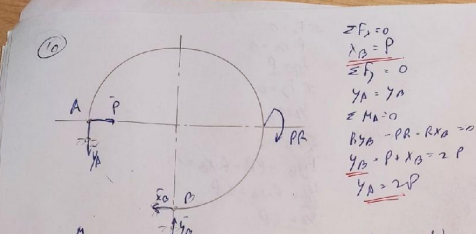 10
A
P
yA
PR
xB
B
yB
ΣFx=0
xB = P
ΣFy = 0
yA = yB
ΣMA=0
RyB - PR - RxB = 0
yB = P + xB = 2P
yA = 2P